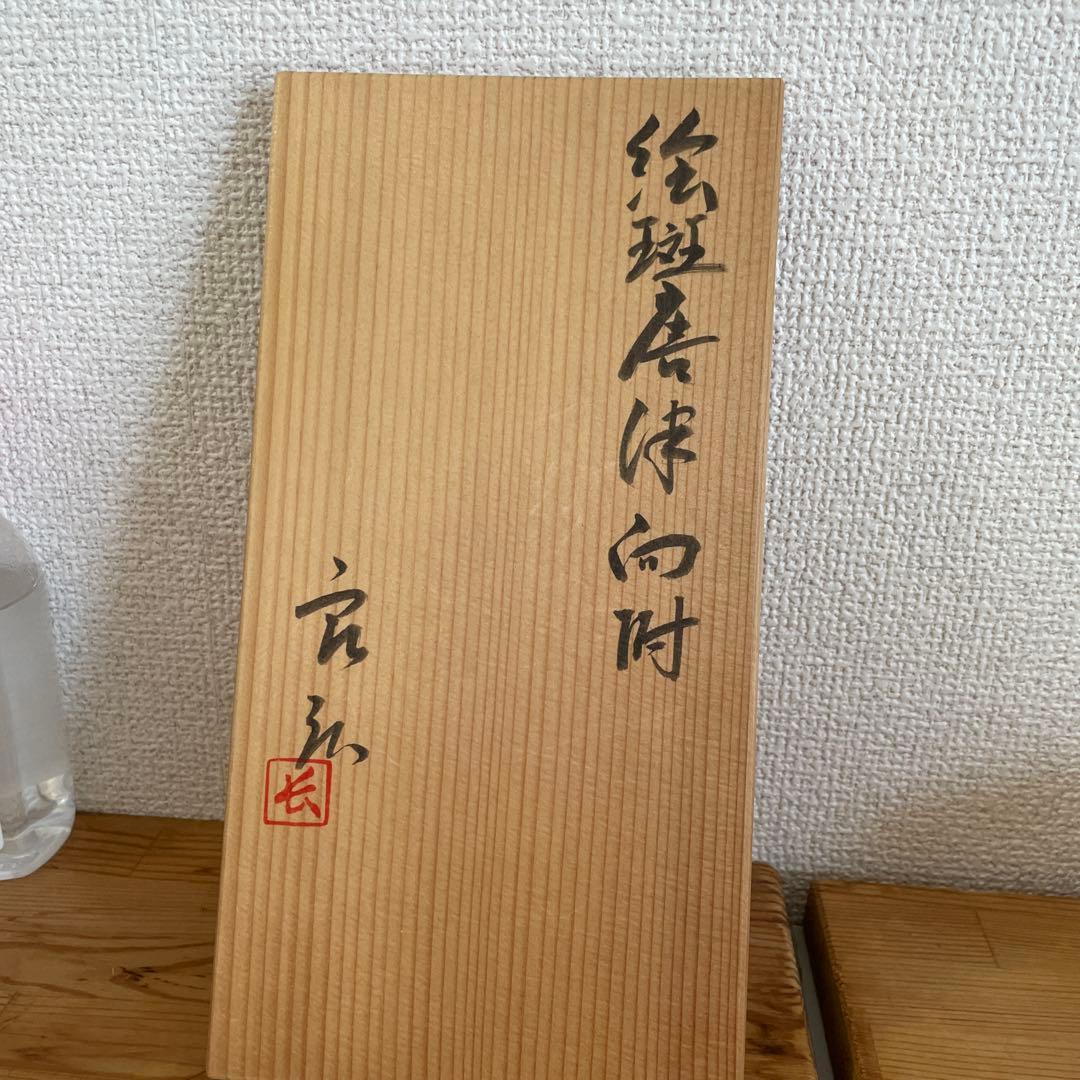 絵斑唐津向附
宏弘
长